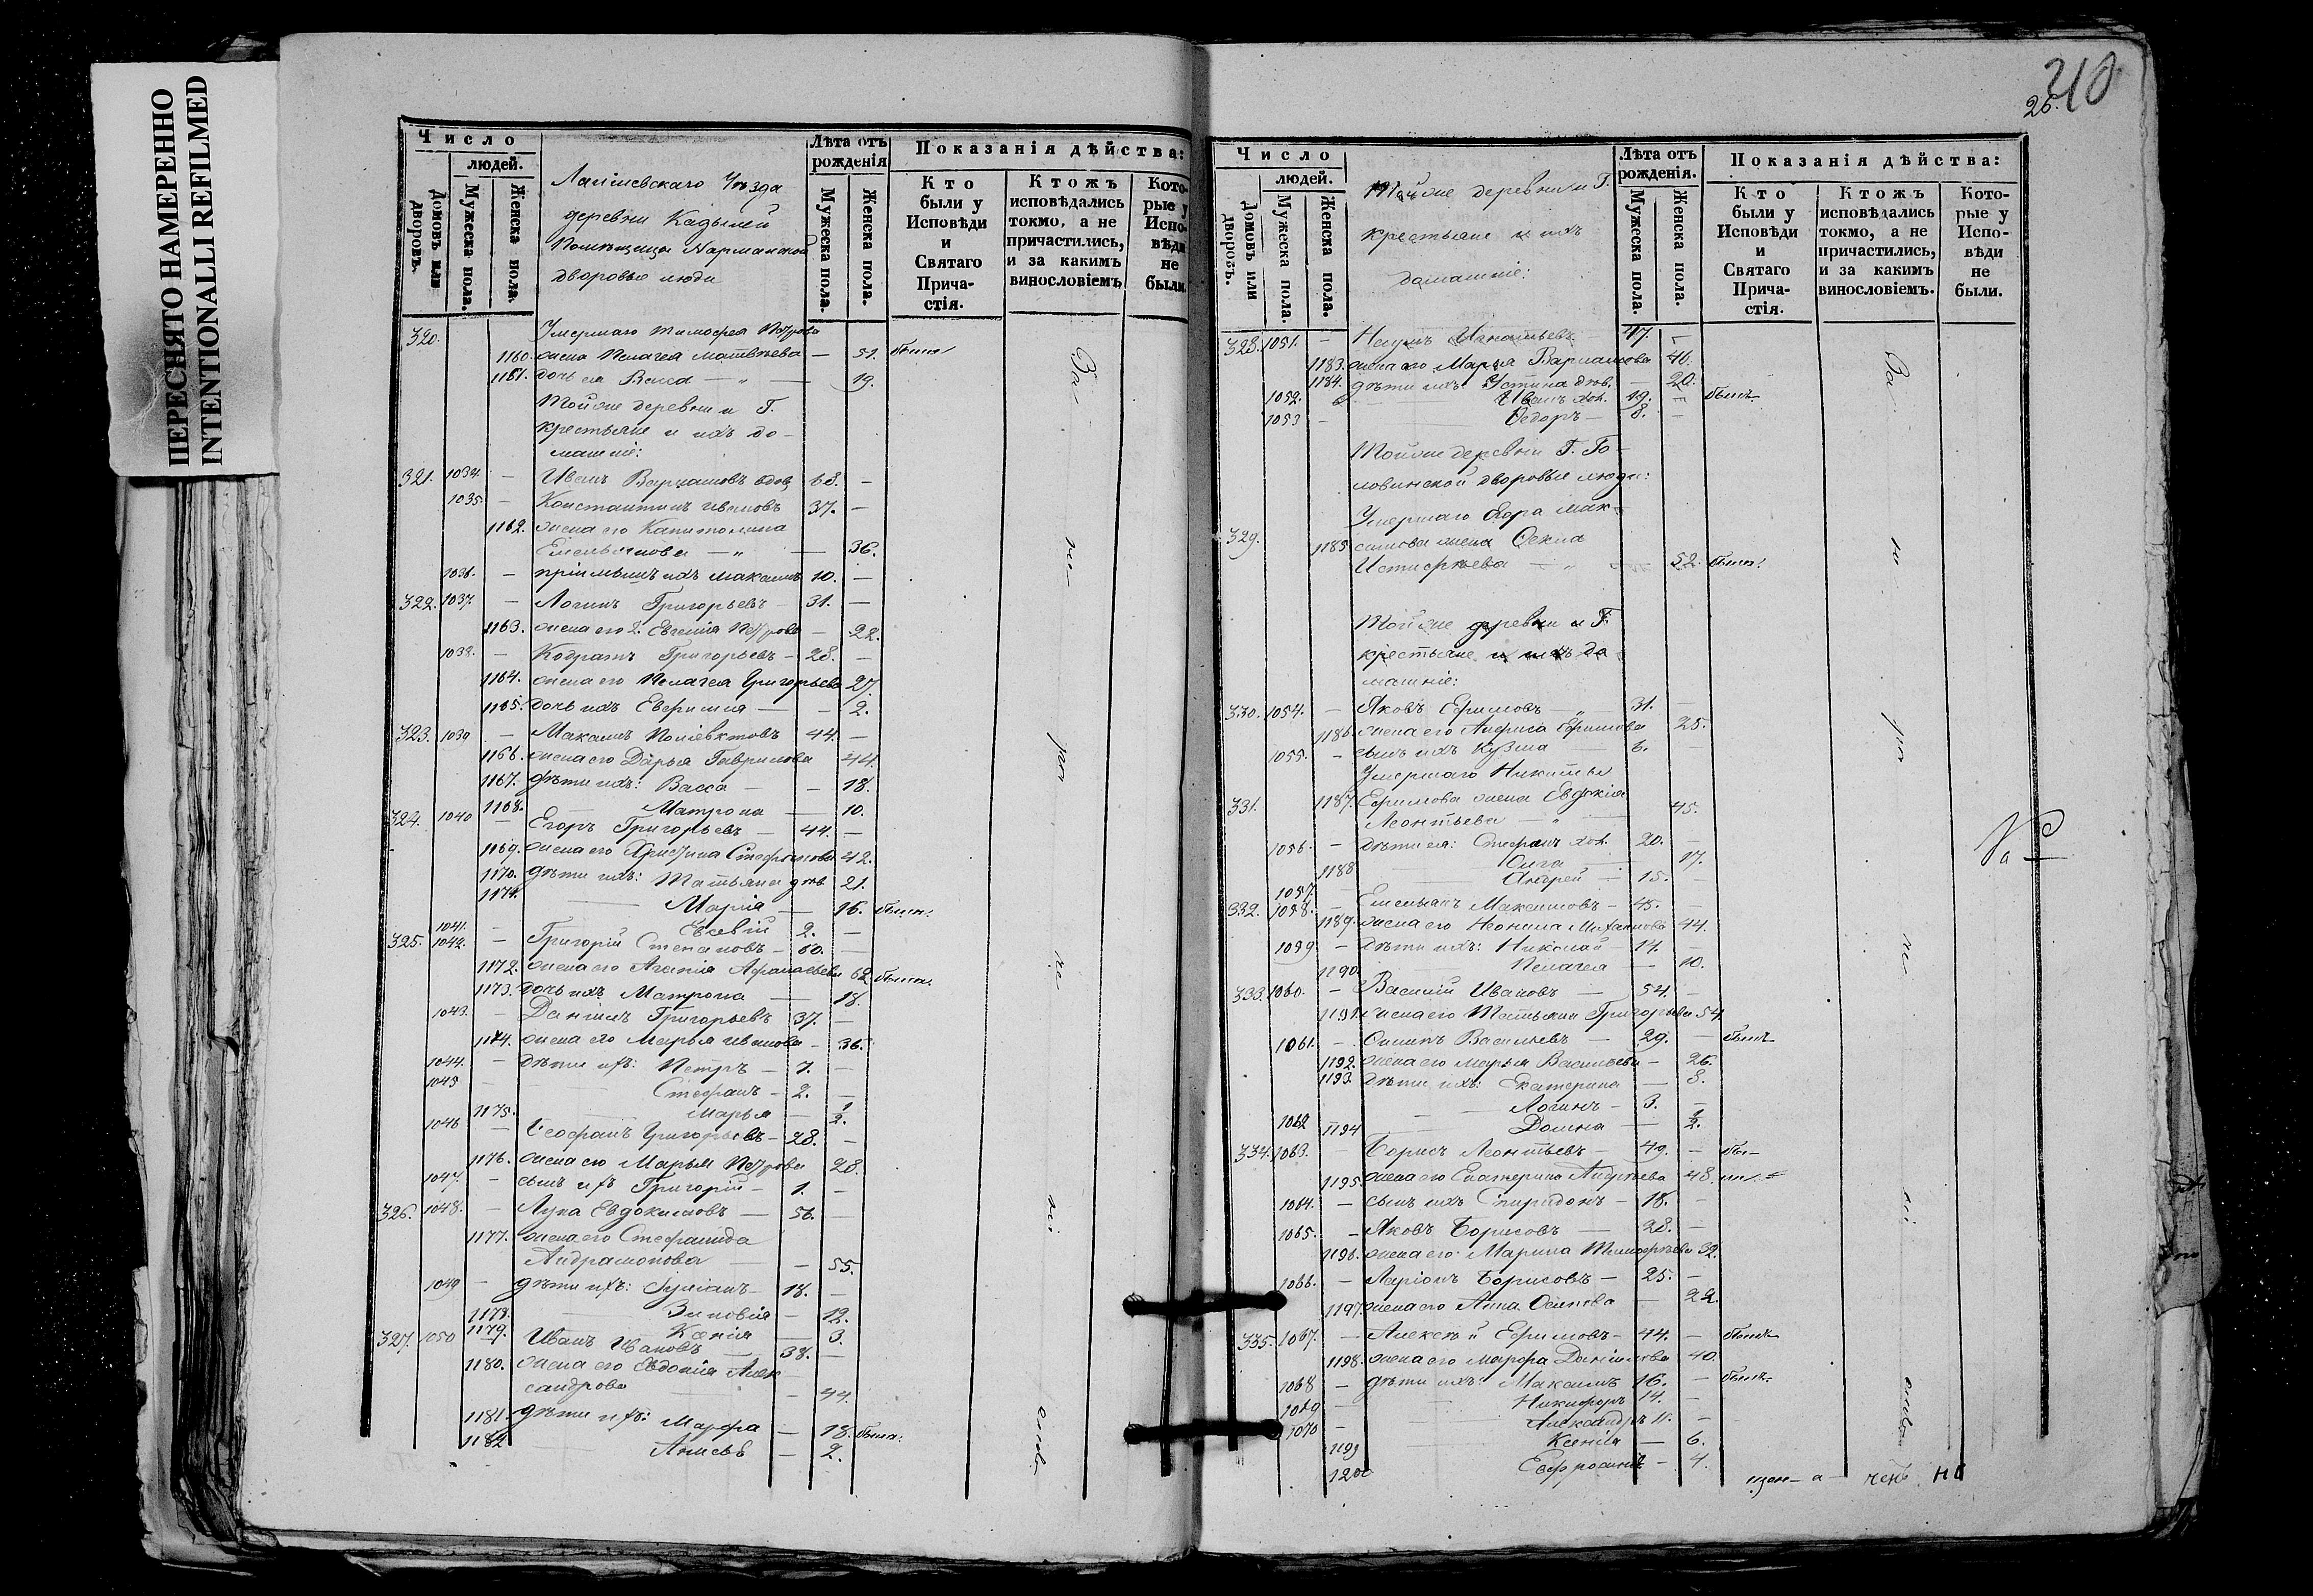 ПЕРЕСНЯТО НАМЕРЕННО
INTENTIONALLI REFILMED
Число
людей.
Домовъ или дворовъ.
Мужеска пола.
Женска пола.
Лаишевскаго Уѣзда
деревни Кадылей
Помѣщицы Нармацкой
дворовые люди
Лѣта отъ рожденія
Мужеска пола.
Женска пола.
Показанія дѣйства:
Кто были у Исповѣди и Святаго Причастія.
Ктожъ исповѣдались токмо, а не причастились, и за какимъ винословіемъ
Которые у Исповѣди не были.
320. Умершаго Тимофея Петрова
1160. жена Пелагея Матвѣева — 51. была
1161. дочь ея Васса — 19.
Тойже деревни и Г.
крестьяне и ихъ до-
машніе:
321. 1034. — Иванъ Варламовъ вдов. 68. —
1035. — Константинъ Ивановъ 37. —
1162. жена его Капитолина
Емельянова — „ — 36.
1036. — пріемышъ ихъ Максимъ 10. —
322. 1037. — Логинъ Григорьевъ 31. —
1163. жена его 2. Евгенія Петрова — 22.
1038. — Кодратъ Григорьевъ — 28. —
1164. жена его Пелагея Григорьева 27.
1165. дочь ихъ Евфимия — 2.
323. 1039 — Максимъ Поліевктовъ 44. —
1166. жена его Дарья Гаврилова 44.
1167. дѣти ихъ: Васса — 18.
1168. Матрона — 10.
324. 1040 — Егоръ Григорьевъ — 44. —
1169. жена его Христина Стефанова 42.
1170. дѣти ихъ: Татьяна дѣв. 21.
1171. Марія — 16. была.
1041. — Евсевій 2. —
325. 1042. — Григорій Степановъ — 60. —
1172. жена его Агенія Афанасьева 62 была.
1173. дочь ихъ Матрона — 18.
1043. — Даніилъ Григорьевъ 37. —
1174. жена его Марья Иванова — 36.
1044. — дѣти ихъ: Петръ — 7. —
1045 — Стефанъ — 2. —
1175. Марья — ½.
1046 — Ѳеофанъ Григорьевъ — 28. —
1176. жена его Марья Петрова 28.
1047. — сынъ ихъ Григорій — 1. —
326. 1048. — Лука Евдокимовъ — 56. —
1177. жена его Стефанида
Андрамонова — 55.
1049 — дѣти ихъ: Гуріанъ — 18. —
1178. Зиновія — 12.
1179. Ксенія — 3.
327. 1050 — Иванъ Ивановъ — 38. —
1180. жена его Евдокія Алек-
сандрова — 44.
1181. дѣти ихъ: Марфа — 18. была.
1182 Анисья — 2.
За
не
ра
не
ні
емъ
210
26.
Число
людей.
Домовъ или дворовъ.
Мужеска пола.
Женска пола.
Тойже деревни и Г.
крестьяне и ихъ
домашніе:
Лѣта отъ рожденія.
Мужеска пола.
Женска пола.
Показанія дѣйства:
Кто были у Исповѣди и Святаго Причастія.
Ктожъ исповѣдались токмо, а не причастились, и за какимъ винословіемъ.
Которые у Исповѣди не были.
328. 1051. — Наумъ Игнатьевъ 47. —
1183. жена его Марья Варламова 46.
1184. дѣти ихъ: Устина дѣв. — 20.
1052. Иванъ хол. 19. — былъ
1053 — Ѳедоръ — 8. —
Тойже деревни Г. Го-
ловинской дворовые люди:
Умершаго Егора Мак-
329. 1185 симова жена Ѳекла
Истифѣева — „ — 52. была.
Тойже деревни и Г.
крестьяне и ихъ до-
машніе:
330. 1054. — Яковъ Ефимовъ „ — 31. —
1186. жена его Анфиса Ефимова 25.
1055. — сынъ ихъ Кузма — 6. —
Умершаго Никиты
331. 1187. Ефимова жена Евдокія
Леонтьева — „ — 45.
1056. — дѣти ея: Стефанъ хол. 20. —
1188 Олга — 17.
1057. — Андрей — 15. —
332. 1058. — Емельянъ Максимовъ — 45. —
1189. жена его Неонила Михайлова 44.
1059 — дѣти ихъ: Николай — 14. —
1190. Пелагея — 10.
333. 1060. — Василій Ивановъ — 54. —
1191. жена его Татьяна Григорьева 54.
1061. — Осипъ Васильевъ — 29. — былъ
1192. жена его Марья Васильева — 26.
1193. дѣти ихъ: Екатерина — 8.
1062 Логинъ — 3. —
1194 Домна — ½.
334. 1063. — Борисъ Леонтьевъ — 49. — бы-
1195. жена его Екатерина Андреева 48. ли
1064. — сынъ ихъ Спиридонъ — 18. —
1065. — Яковъ Борисовъ — 28. —
1196. жена его Марина Тимофѣева 32.
1066. — Ларіонъ Борисовъ — 25. —
1197. жена его Анна Осипова — 22.
335. 1067. — Алексѣй Ефимовъ — 44. — былъ
1198. жена его Марфа Данилова 40.
1068 — дѣти ихъ: Максимъ 16. — былъ.
1069 — Никифоръ 14. —
1070 — Александръ 11. —
1199 Ксенія — 6.
1200 Евфросинія — 4.
За
не
ра
не
ні
емъ